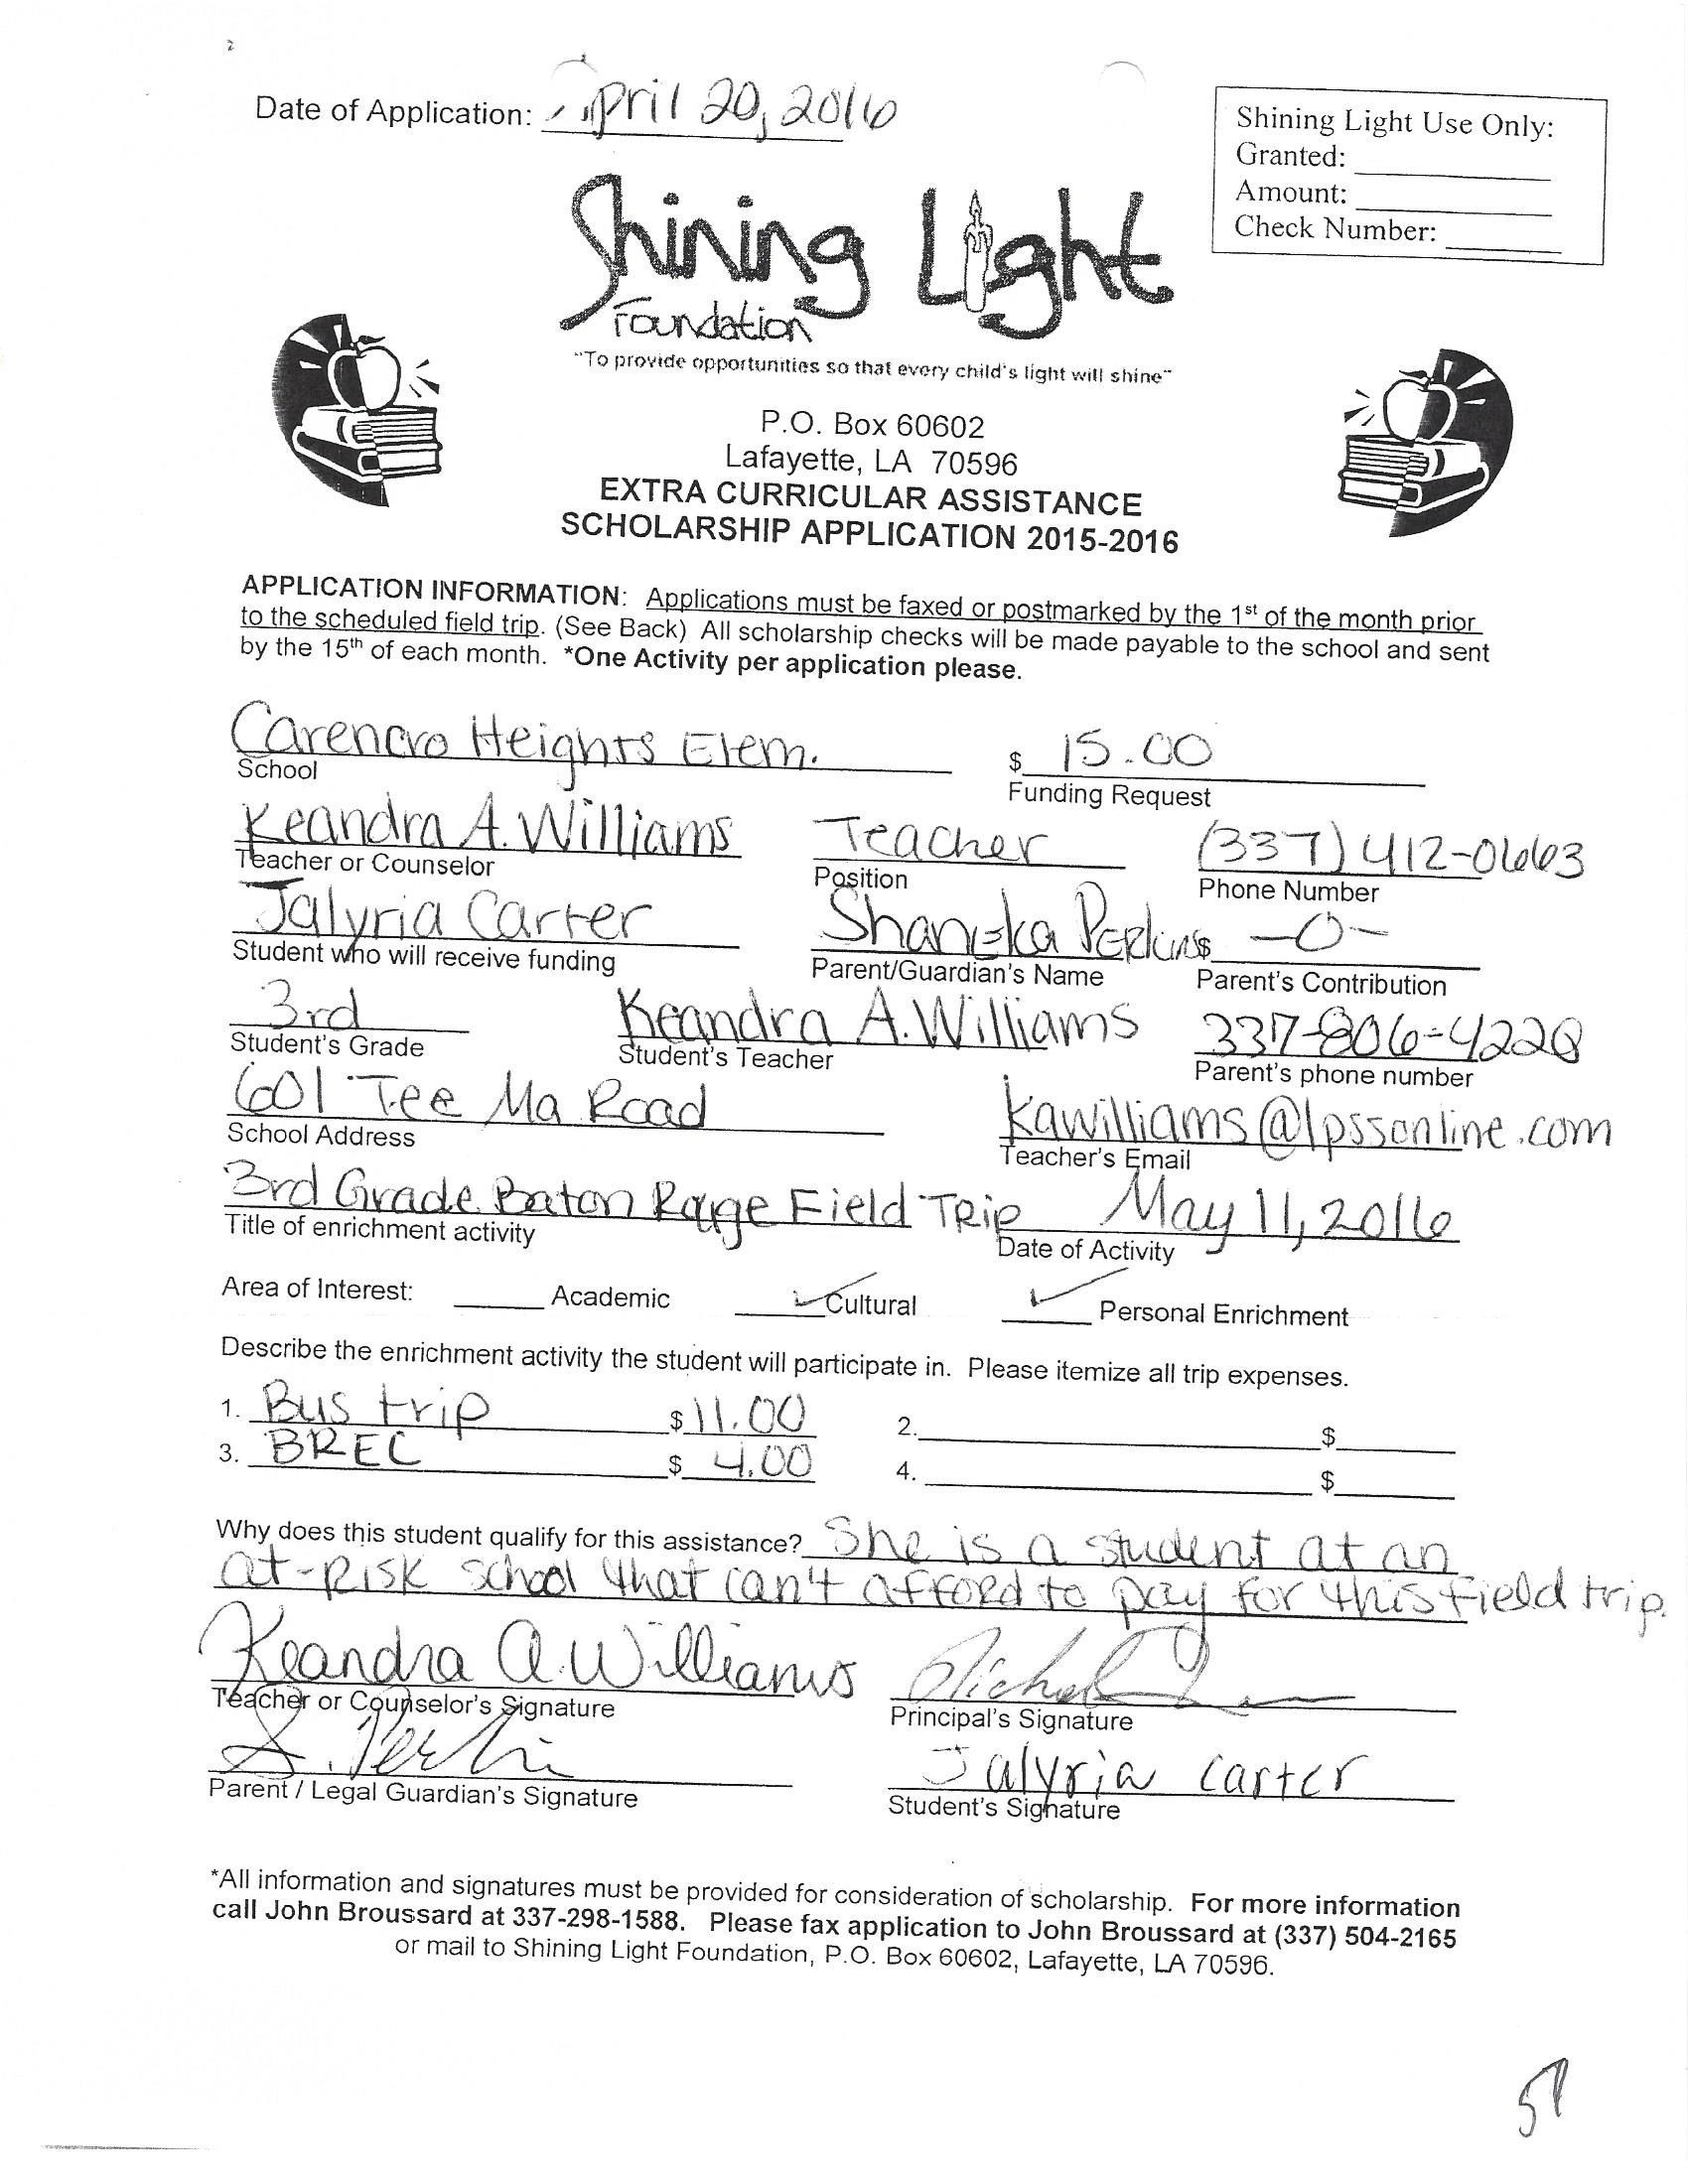 Date of Application: April 20, 2016
Shining Light Use Only:
Granted:
Amount:
Check Number:
Shining Light
Foundation
"To provide opportunities so that every child's light will shine"
P.O. Box 60602
Lafayette, LA 70596
EXTRA CURRICULAR ASSISTANCE
SCHOLARSHIP APPLICATION 2015-2016
APPLICATION INFORMATION: Applications must be faxed or postmarked by the 1st of the month prior
to the scheduled field trip. (See Back) All scholarship checks will be made payable to the school and sent
by the 15th of each month. *One Activity per application please.
Carencro Heights Elem. $ 15.00
School Funding Request
Keandra A. Williams Teacher (337) 412-0663
Teacher or Counselor Position Phone Number
Jalyria Carter Shaneka Perkins $ -0-
Student who will receive funding Parent/Guardian's Name Parent's Contribution
3rd Keandra A. Williams 337-806-4228
Student's Grade Student's Teacher Parent's phone number
601 Tee Ma Road kawilliams@lpssonline.com
School Address Teacher's Email
3rd Grade Baton Rouge Field Trip May 11, 2016
Title of enrichment activity Date of Activity
Area of Interest: Academic ✓ Cultural ✓ Personal Enrichment
Describe the enrichment activity the student will participate in. Please itemize all trip expenses.
1. Bus trip $ 11.00 2. $
3. BREC $ 4.00 4. $
Why does this student qualify for this assistance? She is a student at an
at-risk school that can't afford to pay for this field trip.
Keandra A. Williams
Teacher or Counselor's Signature Principal's Signature
S. Perkins Jalyria Carter
Parent / Legal Guardian's Signature Student's Signature
*All information and signatures must be provided for consideration of scholarship. For more information
call John Broussard at 337-298-1588. Please fax application to John Broussard at (337) 504-2165
or mail to Shining Light Foundation, P.O. Box 60602, Lafayette, LA 70596.